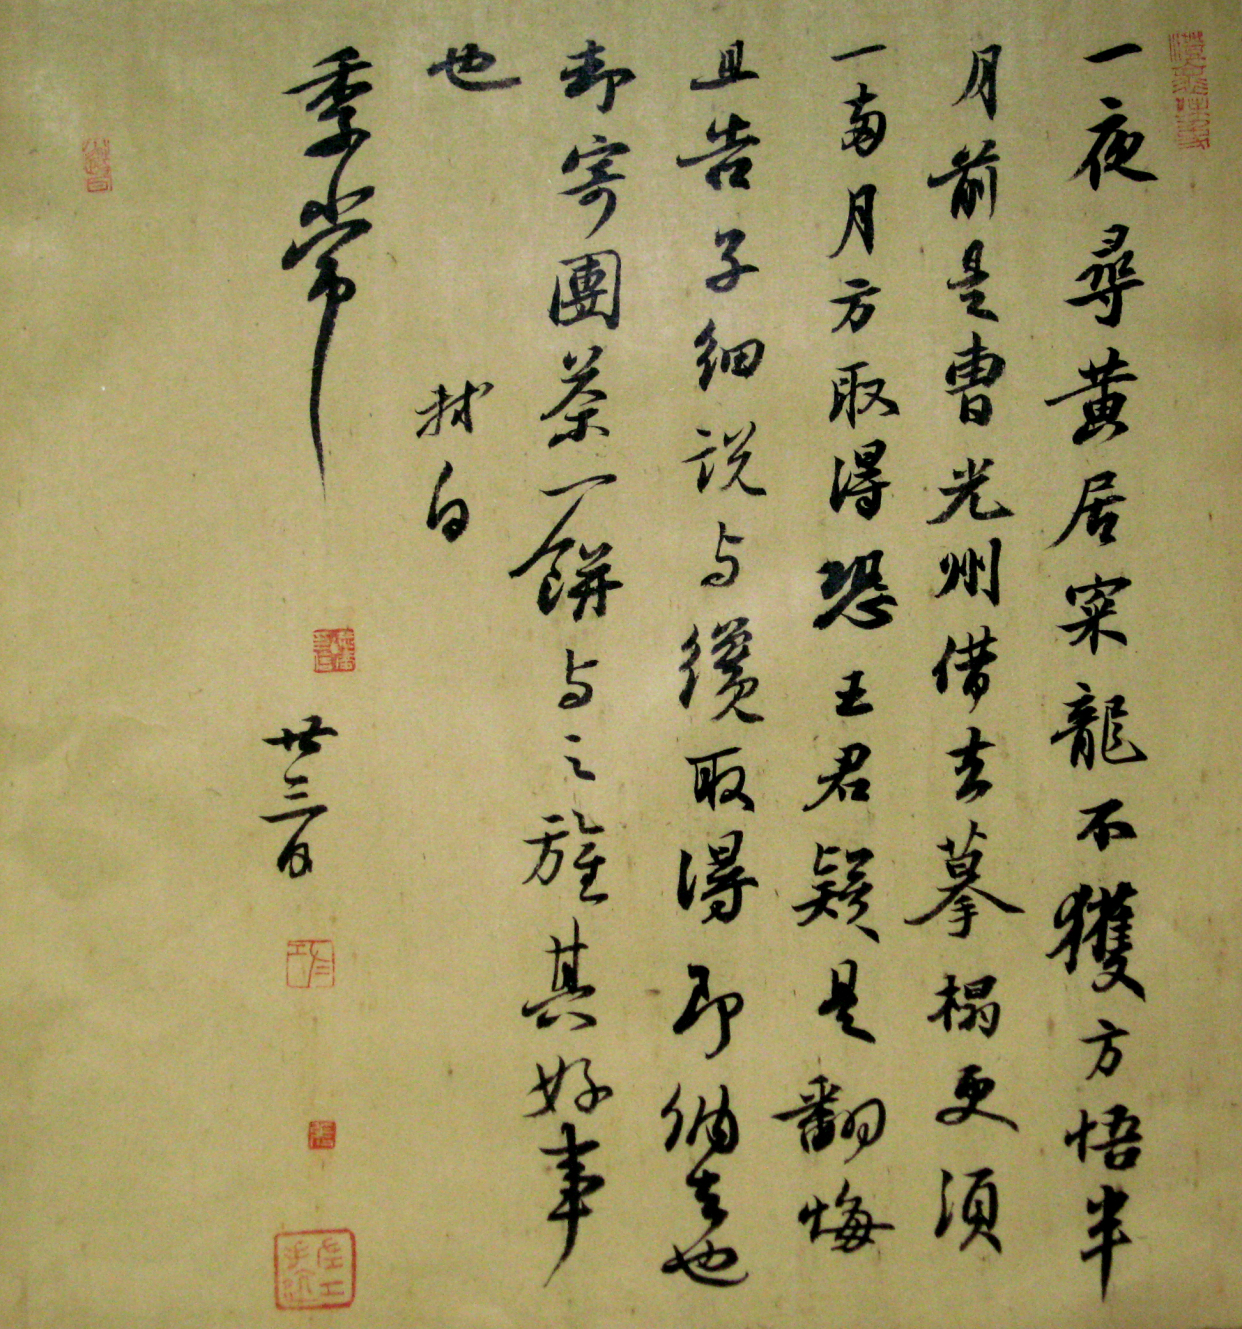 一夜尋黄居寀龍不獲方悟半
月前是曹光州借去摹榻更須
一兩月方取得恐王君疑是翻悔
且告子細説与纔取得即納去也
却寄團茶一餅与之旌其好事
也　軾白
季常
廿三日